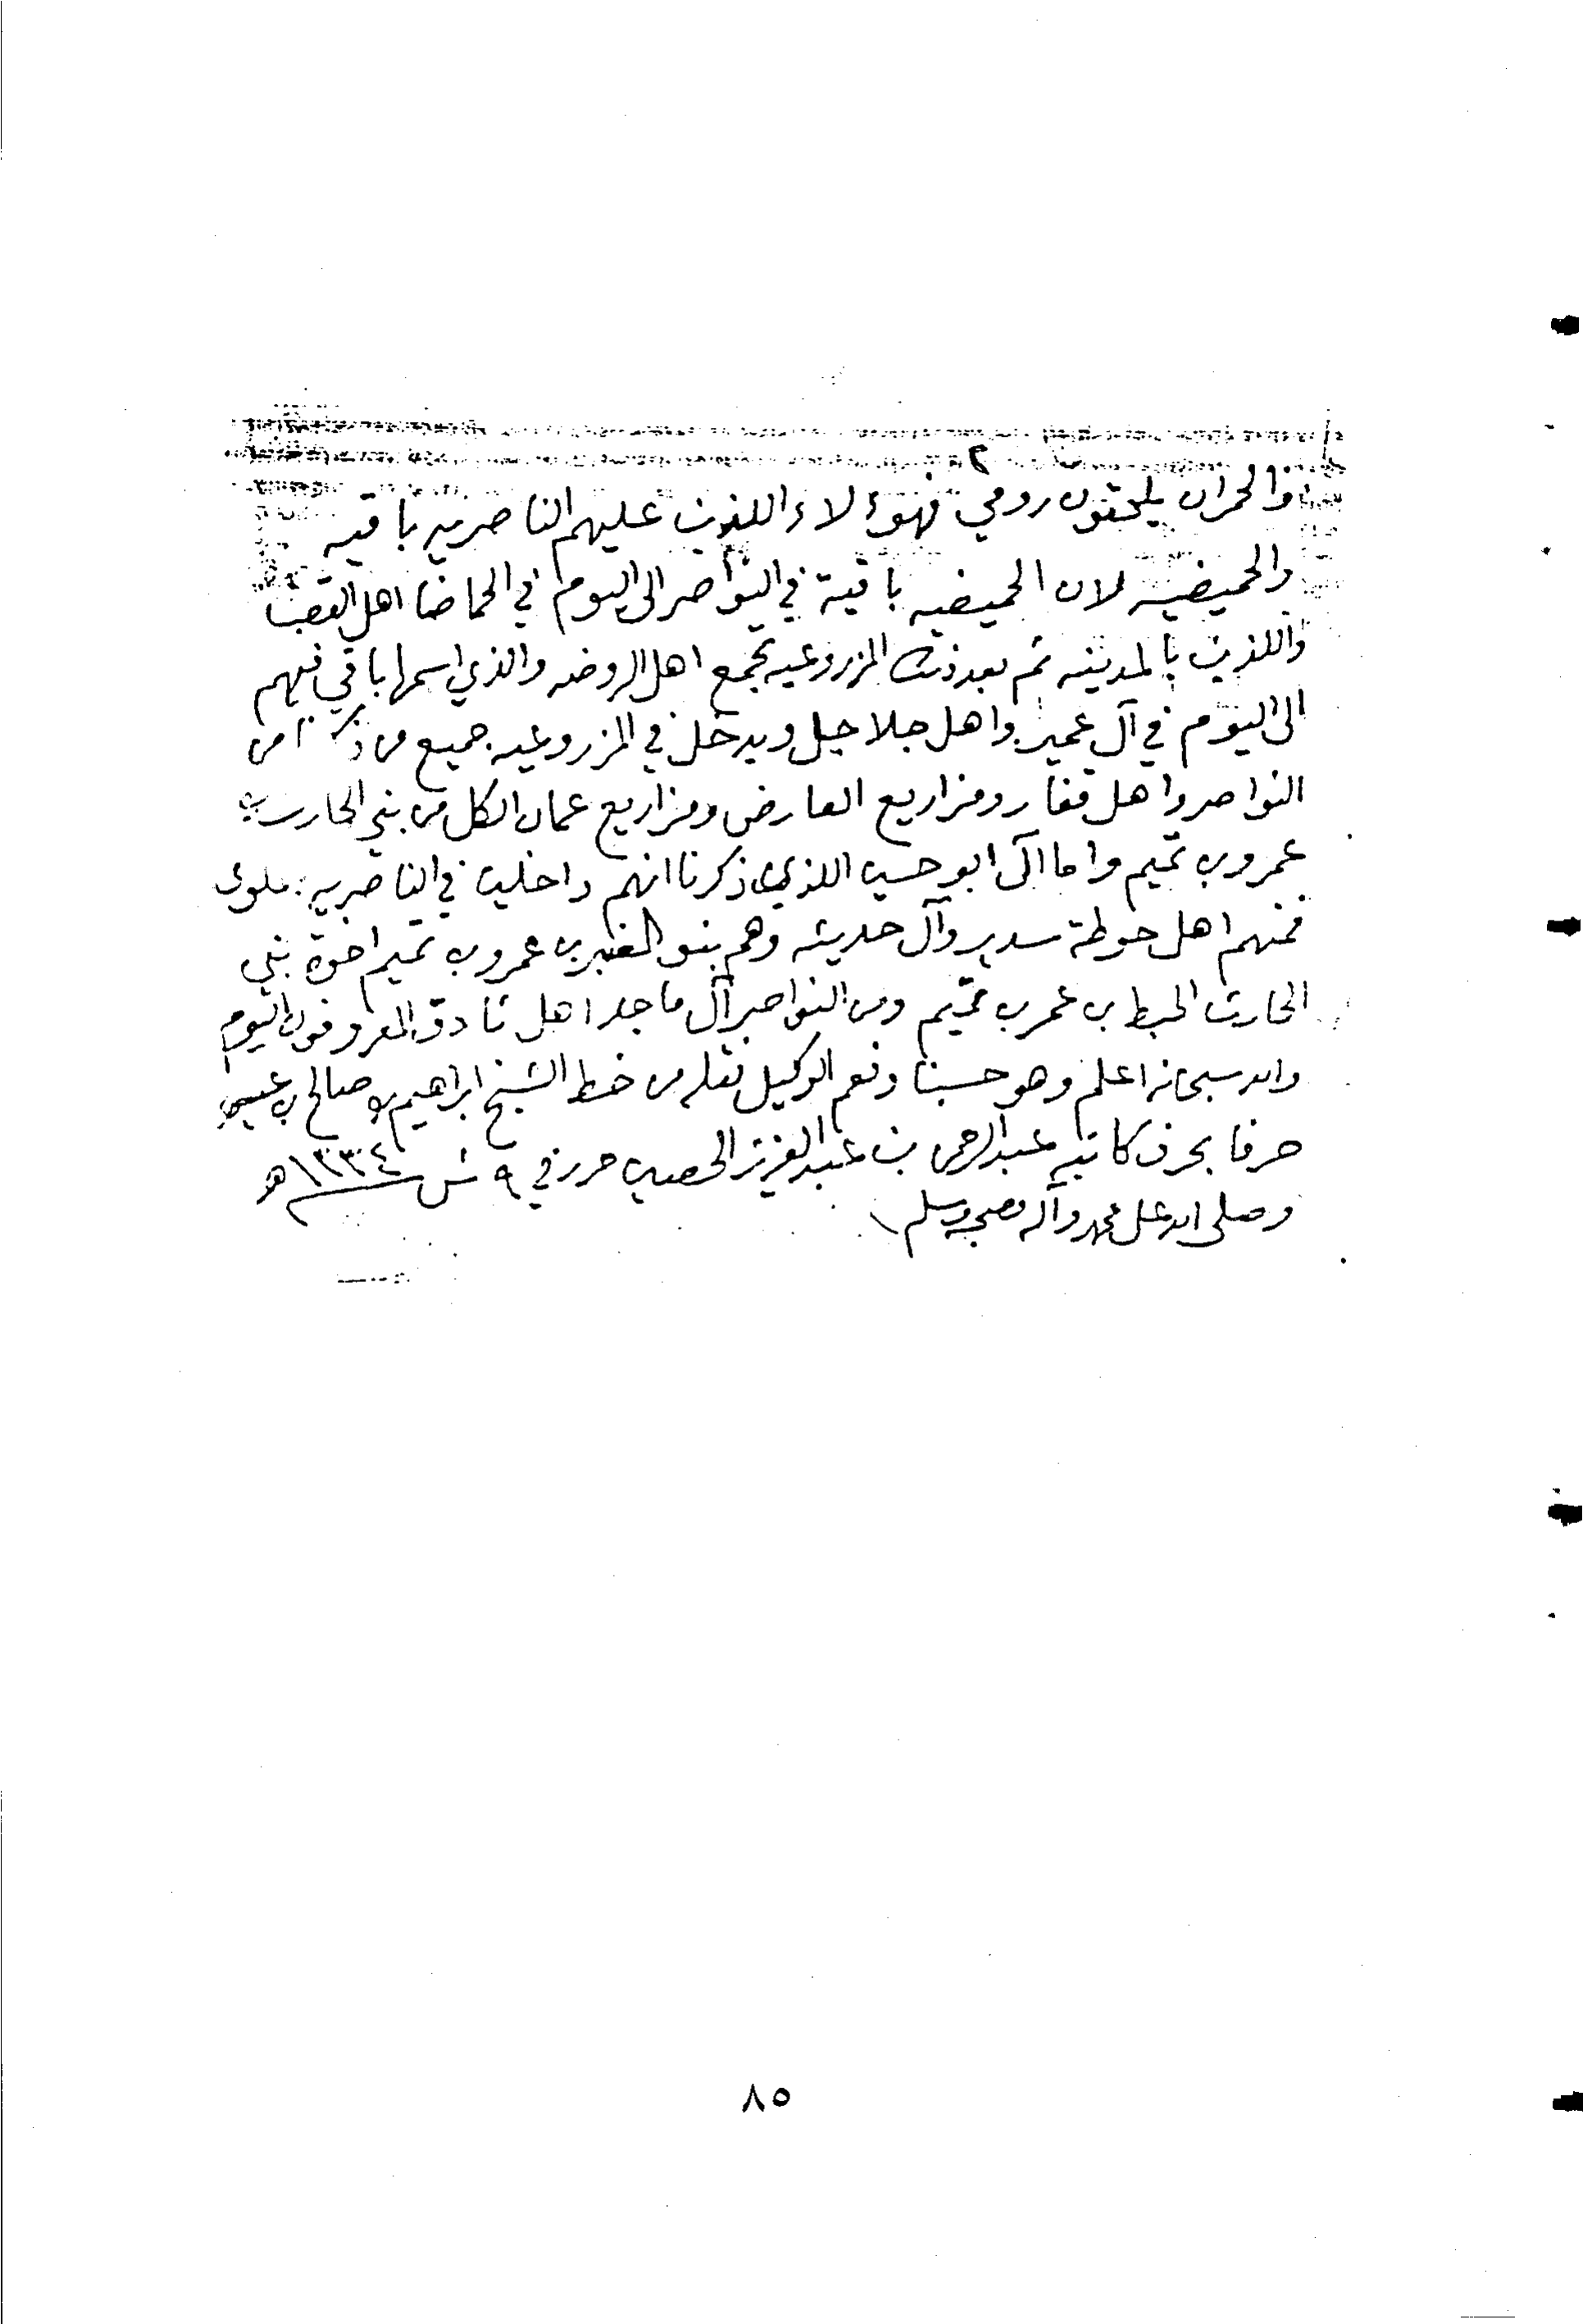 والحمران يلحقون رومي فهوءلاء اللذين عليهم الناصريه باقيه
والحميضيه لان الحميضيه باقية في النواصر الى اليوم في الحماضا اهل القصب
واللذين بالمدينه ثم بعد ذلك المزروعيه تجمع اهل الروضه والذي اسمها باقي فيهم
الى اليوم في آل عمير واهل جلاجل ويدخل في المزروعيه جميع من ذكرنا من
النواصر واهل قفار ومزاريع العارض ومزاريع عمان الكل من بني الحارث بن
عمرو بن تميم واما آل ابو حسين اللذين ذكرنا انهم داخلين في الناصريه
فمنهم اهل حوطة سدير وآل حديثه وهم بنو العنبر بن عمرو بن تميم اخوة بني
الحارث الحبط بن عمر بن تميم ومن النواصر آل ماجد اهل ثادق المعروفون اليوم
والله سبحانه اعلم وهو حسبنا ونعم الوكيل نقله من خط الشيخ ابراهيم بن صالح بن عيسى
حرفا بحرف كاتبه عبدالرحمن بن عبدالعزيز الحصين حرر في ٩ ش ١٣٣٤ هـ
وصلى الله على محمد وآله وصحبه وسلم
٨٥